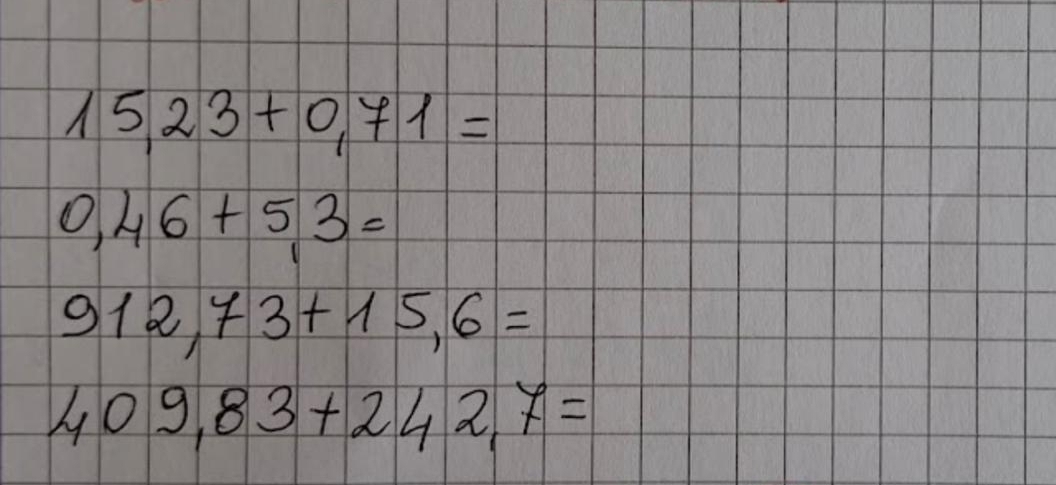 15,23+0,71=
0,46+5,3=
912,73+15,6=
409,83+242,7=